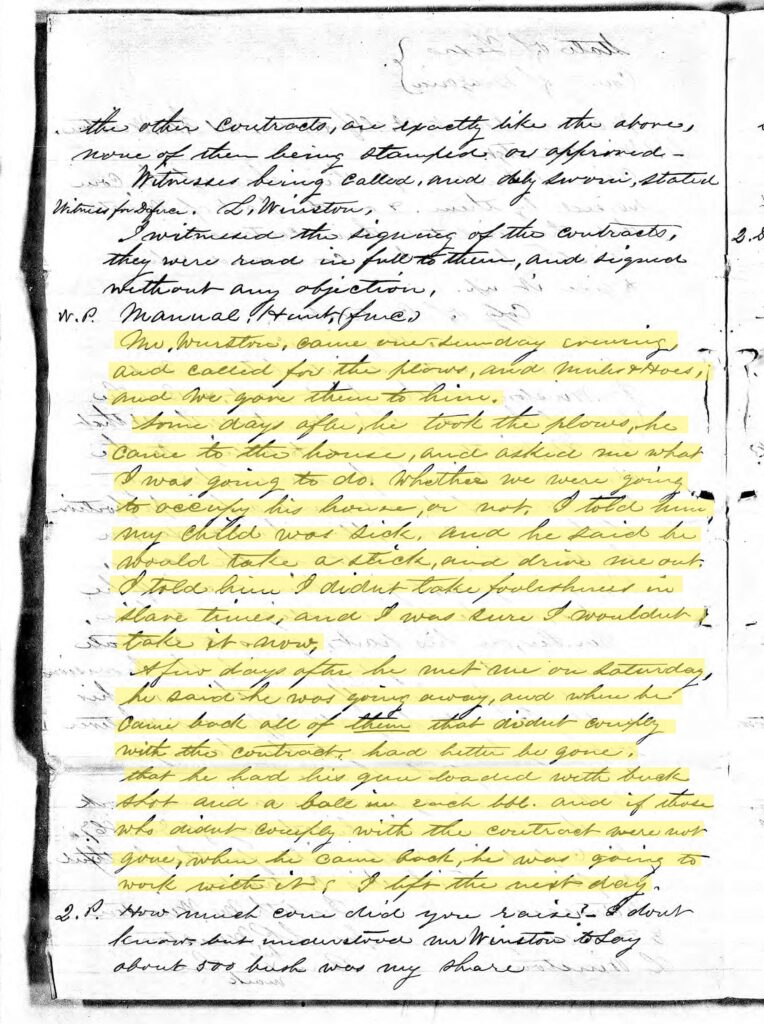 the other contracts, are exactly like the above,
none of them being stamped or approved -
Witnesses being called, and duly sworn, stated
Witness for Defnce. L. Winston,
I witnessed the signing of the contracts,
they were read in full to them, and signed
without any objection,
W.P. Manual. Hunt, (fmc)
Mr. Winston, came one Sunday evening,
and called for the plows, and Mules & Hoes,
and we gave them to him.
Some days after, he took the plows, he
came to the house, and asked me what
I was going to do. Whether we were going
to occupy his house, or not. I told him
my child was sick, and he said he
would take a stick, and drive me out.
I told him I didnt take foolishness in
slave times, and I was sure I wouldnt
take it now,
A few days after he met me on Saturday,
he said he was going away, and when he
came back all of them that didnt comply
with the contract, had better be gone,
that he had his gun loaded with buck
shot and a ball in each bbl. and if those
who didnt comply with the contract were not
gone, when he came back, he was going to
work with it; I left the next day.
2. P. How much corn did you raise? - I dont
know, but understood Mr Winston to say
about 500 bush was my share
2. D